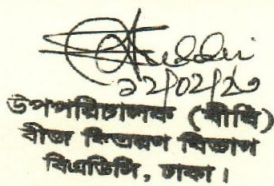 ১২/০২/২০
উপপরিচালক (বীবি)
বীজ বিতরণ বিভাগ
বিএডিসি, ঢাকা।